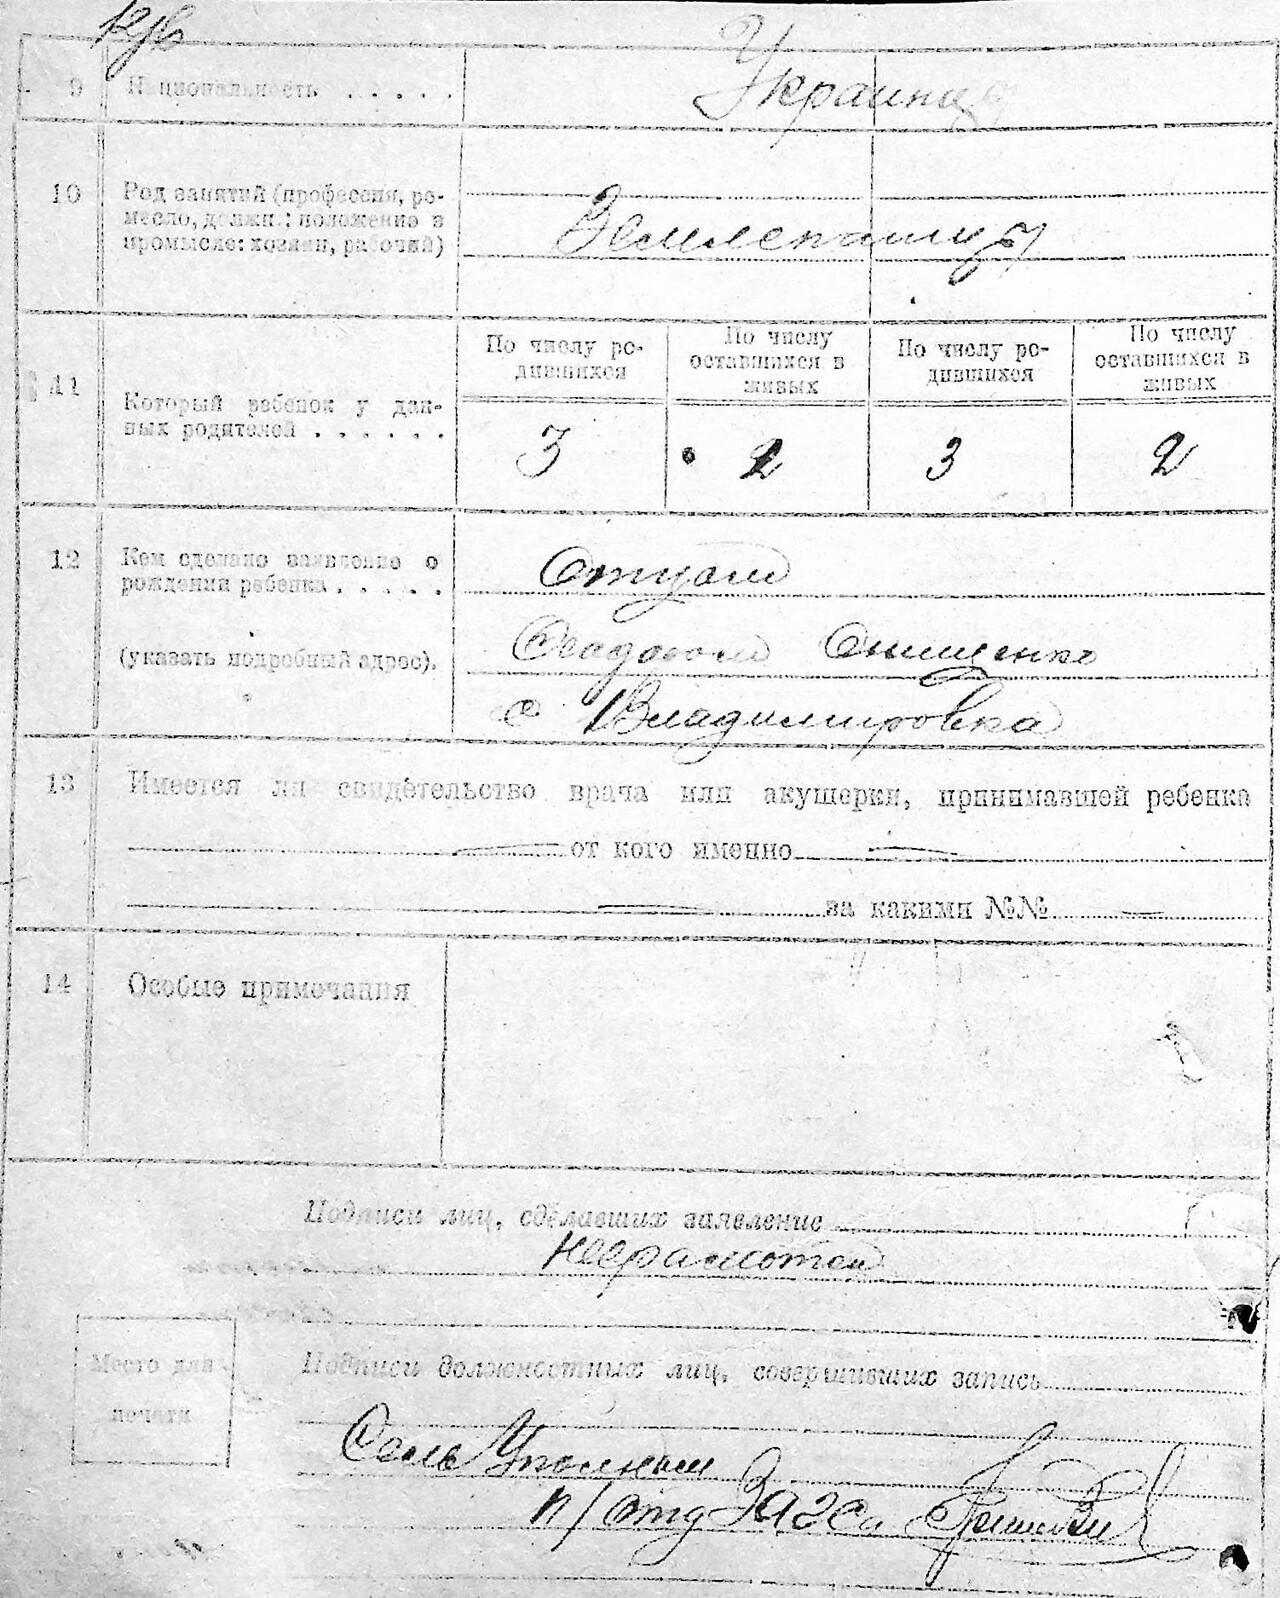 9 Национальность . . . . .
Украинцы
10 Род занятий (профессия, ре-
месло, должн.: положение в
промысле: хозяин, рабочий)
Землепашцы
11 Который ребенок у дан-
ных родителей . . . . . .
По числу ро-
дившихся
По числу
оставшихся в
живых
По числу ро-
дившихся
По числу
оставшихся в
живых
3 2 3 2
12 Кем сделано заявление о
рождении ребенка . . . . .
(указать подробный адрес).
Отцом
Онищенко
с Владимировка
13 Имеется ли свидетельство врача или акушерки, принимавшей ребенка
от кого именно
за какими №№
14 Особые примечания
Подписи лиц, сделавших заявление
неграмотен
Место для
печати
Подписи должностных лиц, совершивших запись
Сель Уполном
п/отд Загса